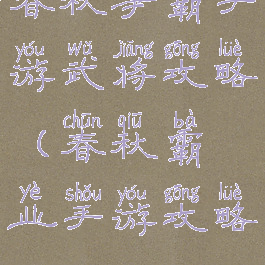 春秋手霸手
yóu wǔ jiàng gōng lüè
游武将攻略
chūn qiū bà
(春秋霸
yè shǒu yóu gōng lüè
业手游攻略